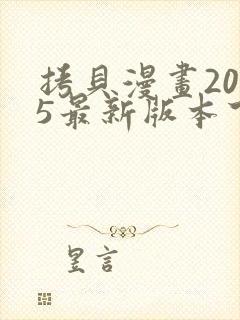 拷貝漫畫20
5最新版本
昱言